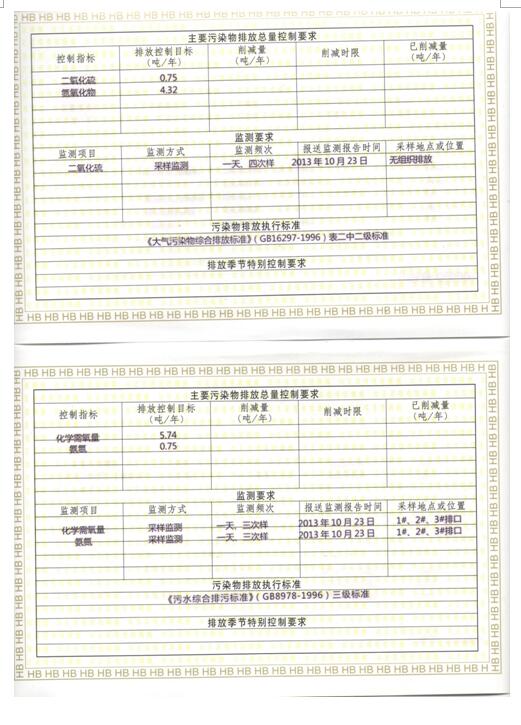 HB HB HB HB HB HB HB HB HB HB HB HB HB HB HB HB HB HB HB HB HB HB
主要污染物排放总量控制要求
控制指标 排放控制目标（吨/年） 削减量（吨/年） 削减时限 已削减量（吨/年）
二氧化硫 0.75
氮氧化物 4.32
监测要求
监测项目 监测方式 监测频次 报送监测报告时间 采样地点或位置
二氧化硫 采样监测 一天、四次样 2013年10月23日 无组织排放
污染物排放执行标准
《大气污染物综合排放标准》（GB16297-1996）表二中二级标准
排放季节特别控制要求
HB HB HB HB HB HB HB HB HB HB HB HB HB HB HB HB HB HB HB HB HB HB
HB HB HB HB HB HB HB HB HB HB HB HB HB HB HB HB HB HB HB HB HB HB
主要污染物排放总量控制要求
控制指标 排放控制目标（吨/年） 削减量（吨/年） 削减时限 已削减量（吨/年）
化学需氧量 5.74
氨氮 0.75
监测要求
监测项目 监测方式 监测频次 报送监测报告时间 采样地点或位置
化学需氧量 采样监测 一天、三次样 2013年10月23日 1#、2#、3#排口
氨氮 采样监测 一天、三次样 2013年10月23日 1#、2#、3#排口
污染物排放执行标准
《污水综合排污标准》（GB8978-1996）三级标准
排放季节特别控制要求
HB HB HB HB HB HB HB HB HB HB HB HB HB HB HB HB HB HB HB HB HB H